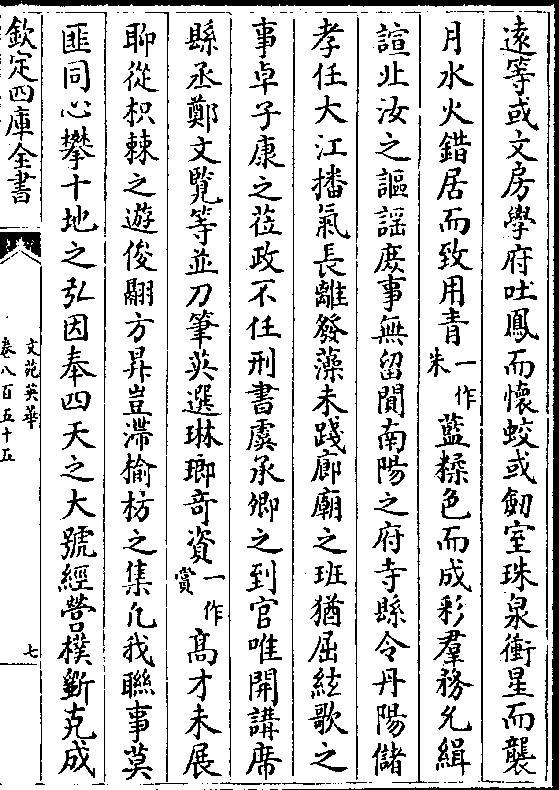 逺等或文房學府吐鳳而懷蛟或劒室珠泉衝星而襲
月水火錯居而致用青一作朱藍糅色而成彩羣務允緝
諠北汝之謳謡庶事無留閴南陽之府寺縣令丹陽儲
孝任大江播氣長離發藻未踐廊廟之班猶屈絃歌之
事卓子康之蒞政不任刑書虞承卿之到官唯開講席
縣丞鄭文覽等並刀筆英選琳瑯奇資一作賞髙才未展
聊從枳棘之遊俊翮方昇豈滯揄枋之集凢我聯事莫
匪同心攀十地之弘因奉四天之大號經營樸斵克成
欽定四庫全書
文苑英華
卷八百五十五
七